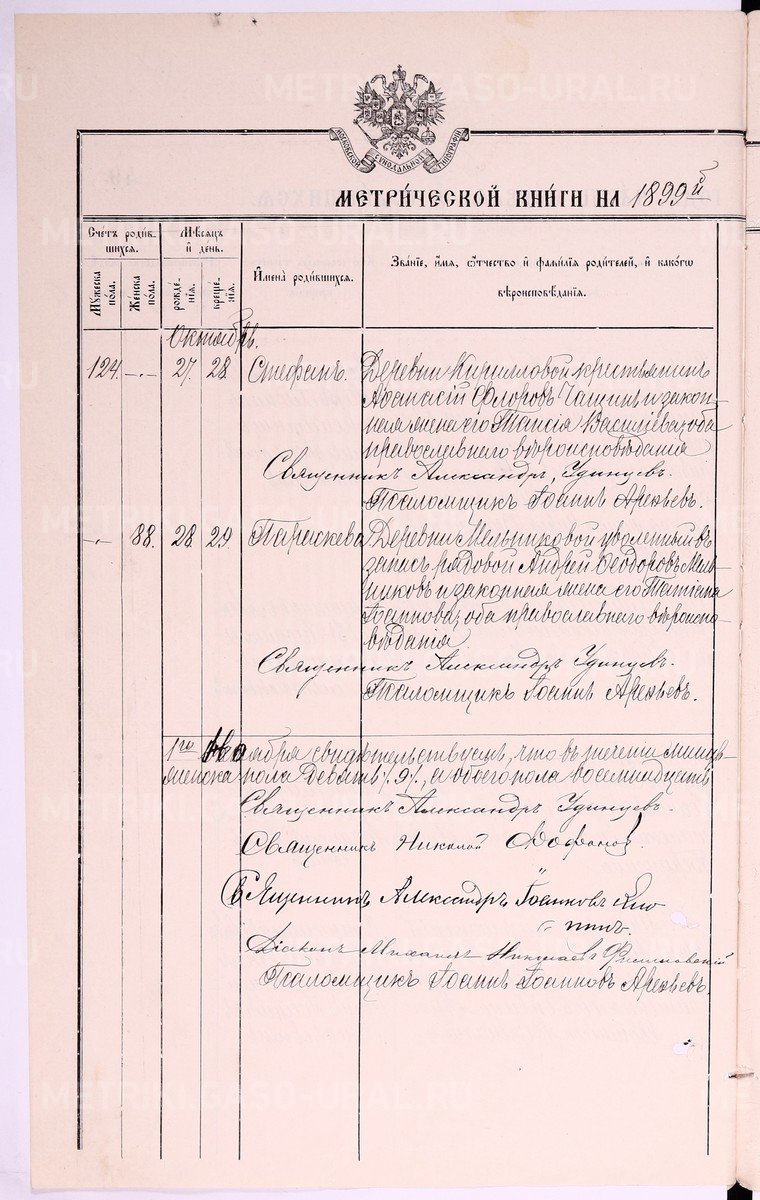 METRIKI.GASO-URAL.RU
МОСКОВСКОЙ СУНОДАЛЬНОЙ ТИПОГРАФІИ
МЕТРИ́ЧЕСКОЙ КНИ́ГИ НА 1899й
Сче́тъ роди́вшихся.
Мѣ́сяцъ и де́нь.
Имена̀ роди́вшихся.
Зва́ніе, и́мя, ѻ́тчество и фами́лія роди́телей, и како́гѡ вѣроисповѣ́данія.
Мꙋ́жеска по́ла.
Же́нска по́ла.
рожде́нія.
креще́нія.
Октябрь.
124. —.— 27. 28. Стефанъ. Деревни Кирилловой крестьянинъ
Аѳанасій Флоровъ Чащинъ и закон-
ная жена его Таисія Васильева, оба
православнаго вѣроисповѣданія
Священникъ Александръ Удинцевъ.
Псаломщикъ Іоаннъ Арефьевъ.
—.— 88. 28. 29. Параскева Деревни Мельниковой уволенный въ
запасъ рядовой Андрей Ѳеодоровъ Мель-
никовъ и законная жена его Татіана
Іоаннова, оба православнаго вѣроиспо-
вѣданія.
Священникъ Александръ Удинцевъ.
Псаломщикъ Іоаннъ Арефьевъ.
1го Ноября свидѣтельствуемъ, что въ теченіи
женска пола девять /.9/., а обоего пола восемнадцать
Священникъ Александръ Удинцевъ.
Священникъ Николай
Священникъ Александръ Іоанновъ
Діаконъ Михаилъ Николаевъ
Псаломщикъ Іоаннъ Іоанновъ Арефьевъ.